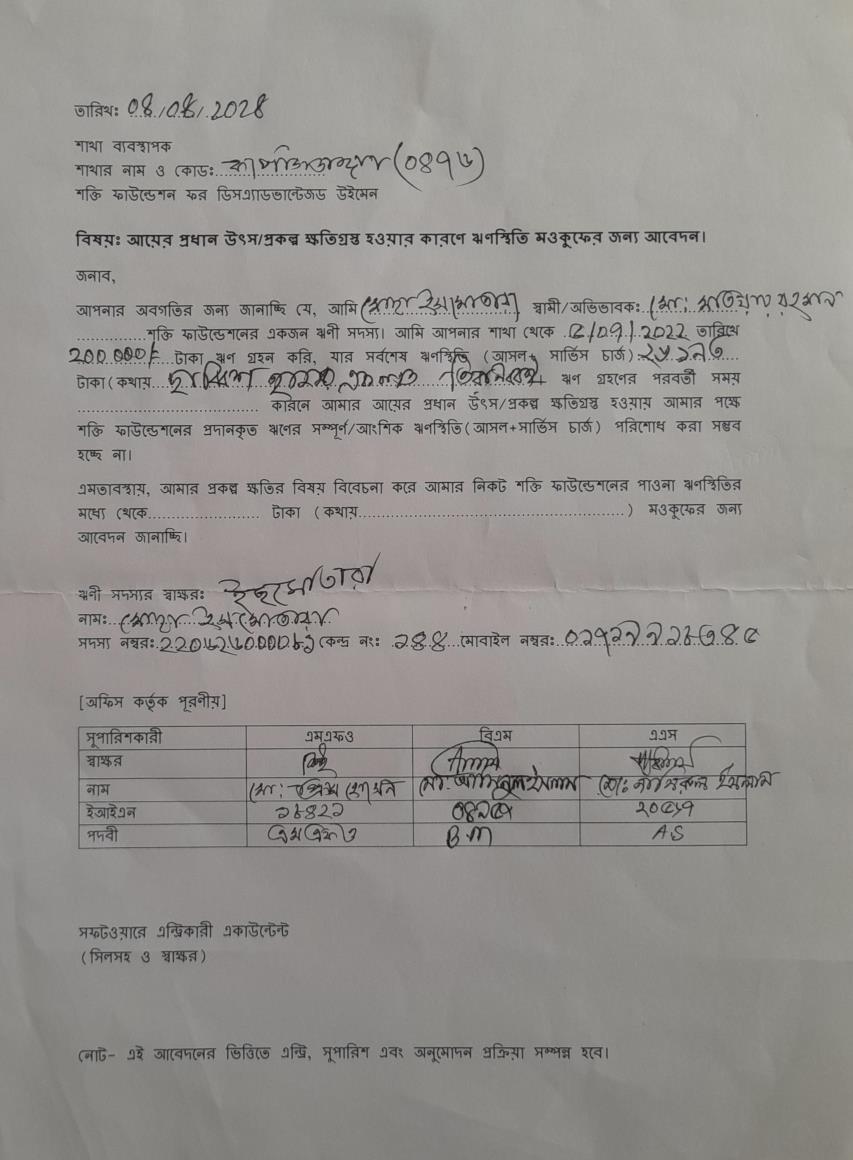 তারিখঃ 08/08/2028
শাখা ব্যবস্থাপক
শাখার নাম ও কোডঃ (0896)
শক্তি ফাউন্ডেশন ফর ডিসএ্যাডভান্টেজড উইমেন
বিষয়ঃ আয়ের প্রধান উৎস/প্রকল্প ক্ষতিগ্রস্ত হওয়ার কারণে ঋণস্থিতি মওকুফের জন্য আবেদন।
জনাব,
আপনার অবগতির জন্য জানাচ্ছি যে, আমি স্বামী/অভিভাবকঃ মোঃ মতিয়ার রহমান
শক্তি ফাউন্ডেশনের একজন ঋনী সদস্য। আমি আপনার শাখা থেকে ৫/০৭/2022 তারিখে
200000/- টাকা ঋণ গ্রহন করি, যার সর্বশেষ ঋণস্থিতি (আসল+ সার্ভিস চার্জ)
টাকা(কথায় ঋণ গ্রহণের পরবর্তী সময়
কারনে আমার আয়ের প্রধান উৎস/প্রকল্প ক্ষতিগ্রস্ত হওয়ায় আমার পক্ষে
শক্তি ফাউন্ডেশনের প্রদানকৃত ঋণের সম্পূর্ণ/আংশিক ঋণস্থিতি(আসল+সার্ভিস চার্জ) পরিশোধ করা সম্ভব
হচ্ছে না।
এমতাবস্থায়, আমার প্রকল্প ক্ষতির বিষয় বিবেচনা করে আমার নিকট শক্তি ফাউন্ডেশনের পাওনা ঋণস্থিতির
মধ্যে থেকে.................... টাকা (কথায়................................................) মওকুফের জন্য
আবেদন জানাচ্ছি।
ঋনী সদস্যর স্বাক্ষরঃ
নামঃ
সদস্য নম্বরঃ কেন্দ্র নংঃ ২৪৪ মোবাইল নম্বরঃ
[অফিস কর্তৃক পূরনীয়]
সুপারিশকারী এমএফও বিএম এএস
স্বাক্ষর
নাম মোঃ মোঃ আমিনুল ইসলাম মোঃ ইসলাম
ইআইএন
পদবী এমএফও BM AS
সফটওয়ারে এন্ট্রিকারী একাউন্টেন্ট
(সিলসহ ও স্বাক্ষর)
নোট- এই আবেদনের ভিত্তিতে এন্ট্রি, সুপারিশ এবং অনুমোদন প্রক্রিয়া সম্পন্ন হবে।